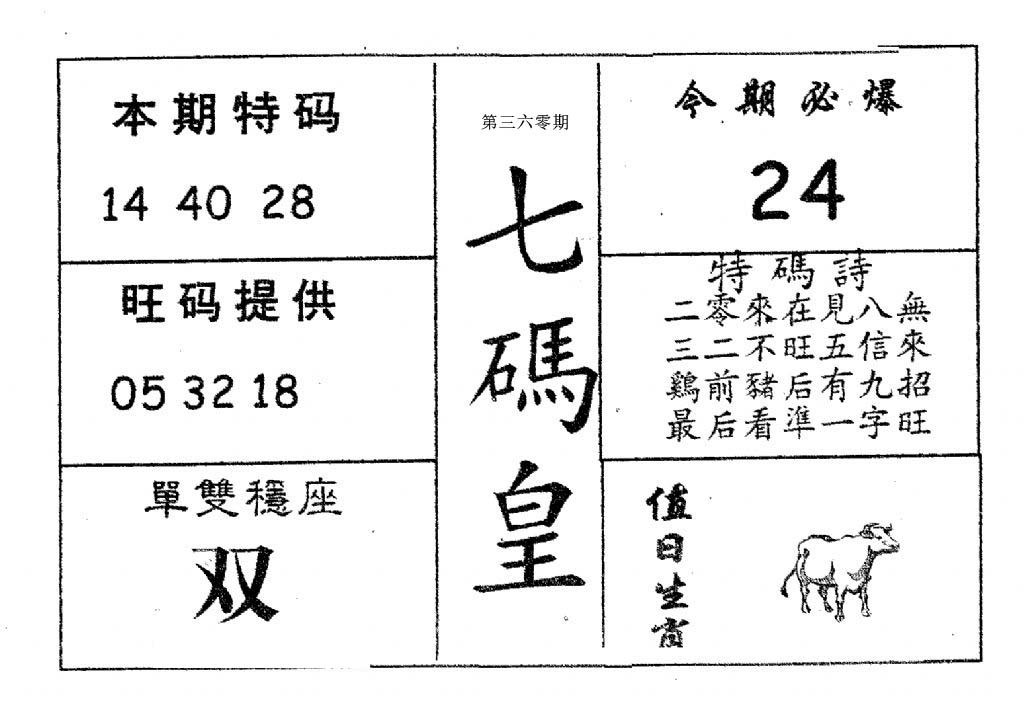 本期特码
14 40 28
旺码提供
05 32 18
單雙穩座
双
第三六零期
七碼皇
今期必爆
24
特碼詩
二零來在見八無
三二不旺五信來
鷄前豬后有九招
最后看準一字旺
值日生肖